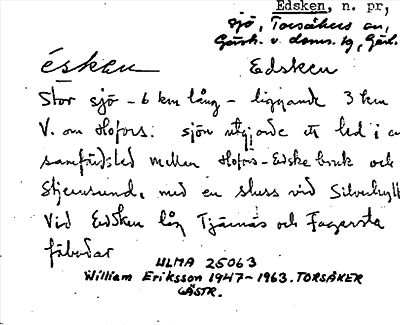 Edsken, n. pr,
sjö, Torsåkers sn,
Gästr. v. doms. tg, Gävl.
ésken Edsken
Stor sjö - 6 km lång - liggande 3 km
V. om Hofors. sjön utgjorde ett led i en
samfärdsled mellan Hofors-Edske bruk och
Stjernsund, med en sluss vid Silverhytt
Vid Edsken låg Tjärnäs och Fagersta
fäbodar
ULMA 25063
William Eriksson 1947-1963. TORSÅKER
GÄSTR.